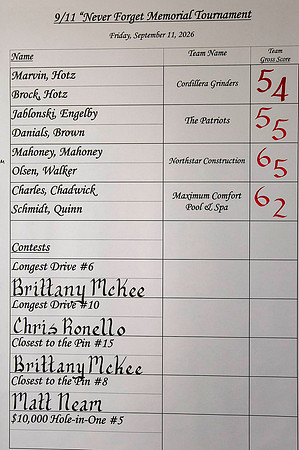 9/11 "Never Forget Memorial Tournament
Friday, September 11, 2026
Name Team Name Team Gross Score
Marvin, Hotz
Brock, Hotz
Cordillera Grinders 54
Jablonski, Engelby
Danials, Brown
The Patriots 55
Mahoney, Mahoney
Olsen, Walker
Northstar Construction 65
Charles, Chadwick
Schmidt, Quinn
Maximum Comfort
Pool & Spa
62
Contests
Longest Drive #6
Brittany McKee
Longest Drive #10
Chris Ronello
Closest to the Pin #15
Brittany McKee
Closest to the Pin #8
Matt Neam
$10,000 Hole-in-One #5